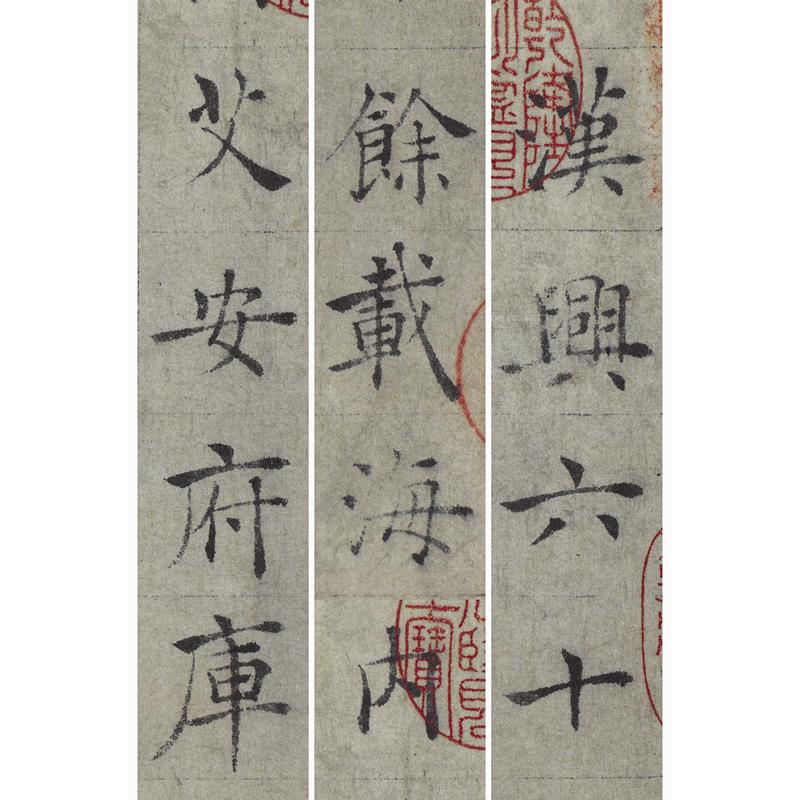 漢興六十
餘載海内
艾安府庫